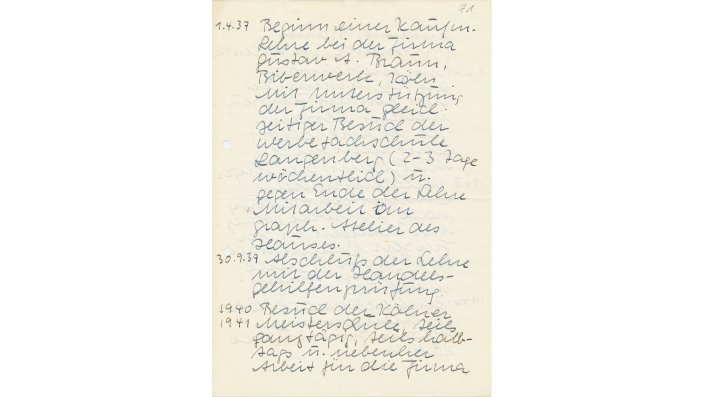 71
1.4.37 Beginn einer Kaufm.
Lehre bei der Firma
Gustav A. Braun,
Biberwerk, Köln
Mit Unterstützung
der Firma gleich-
zeitiger Besuch der
Werbefachschule
Langenberg (2-3 Tage
wöchentlich) u.
gegen Ende der Lehre
Mitarbeit im
graph. Atelier des
Hauses.
30.9.39 Abschluß der Lehre
mit der Handels-
gehilfenprüfung
1940 Besuch der Kölner
1941 Meisterschule, teils
ganztägig, teils halb-
tags u. nebenher
Arbeit für die Firma